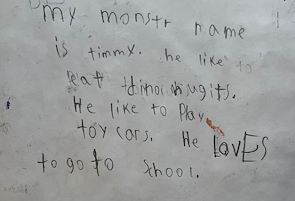 my monstr name
is timmy. he like to
eat dinonugits.
He like to Play
toy cars. He lovES
to go to School.